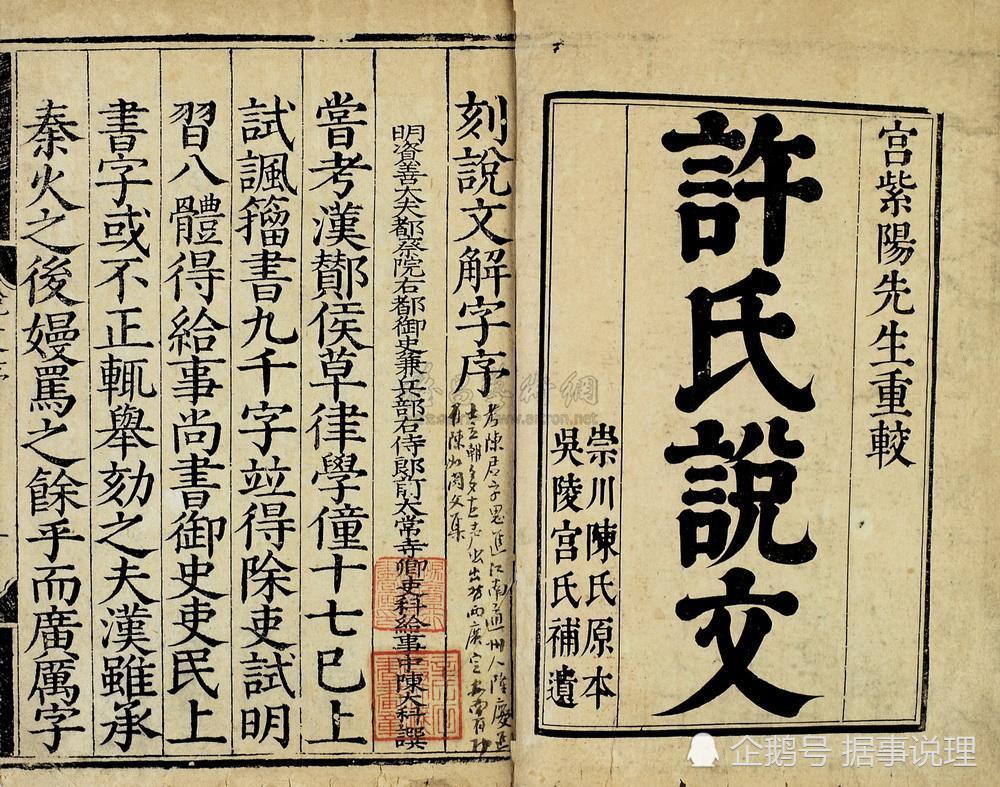 宫紫陽先生重較
許氏説文
崇川陳氏原本
吳陵宫氏補遺
刻說文解字序
明資善大夫都察院右都御史兼兵部右侍郎前太常寺卿吏科給事中陳大科譔
嘗考漢酇侯草律學僮十七已上
試諷籀書九千字竝得除吏試明
習八體得給事尚書御史吏民上
書字或不正輒舉劾之夫漢雖承
秦火之後嫚罵之餘乎而廣厲字
企鹅号 据事说理